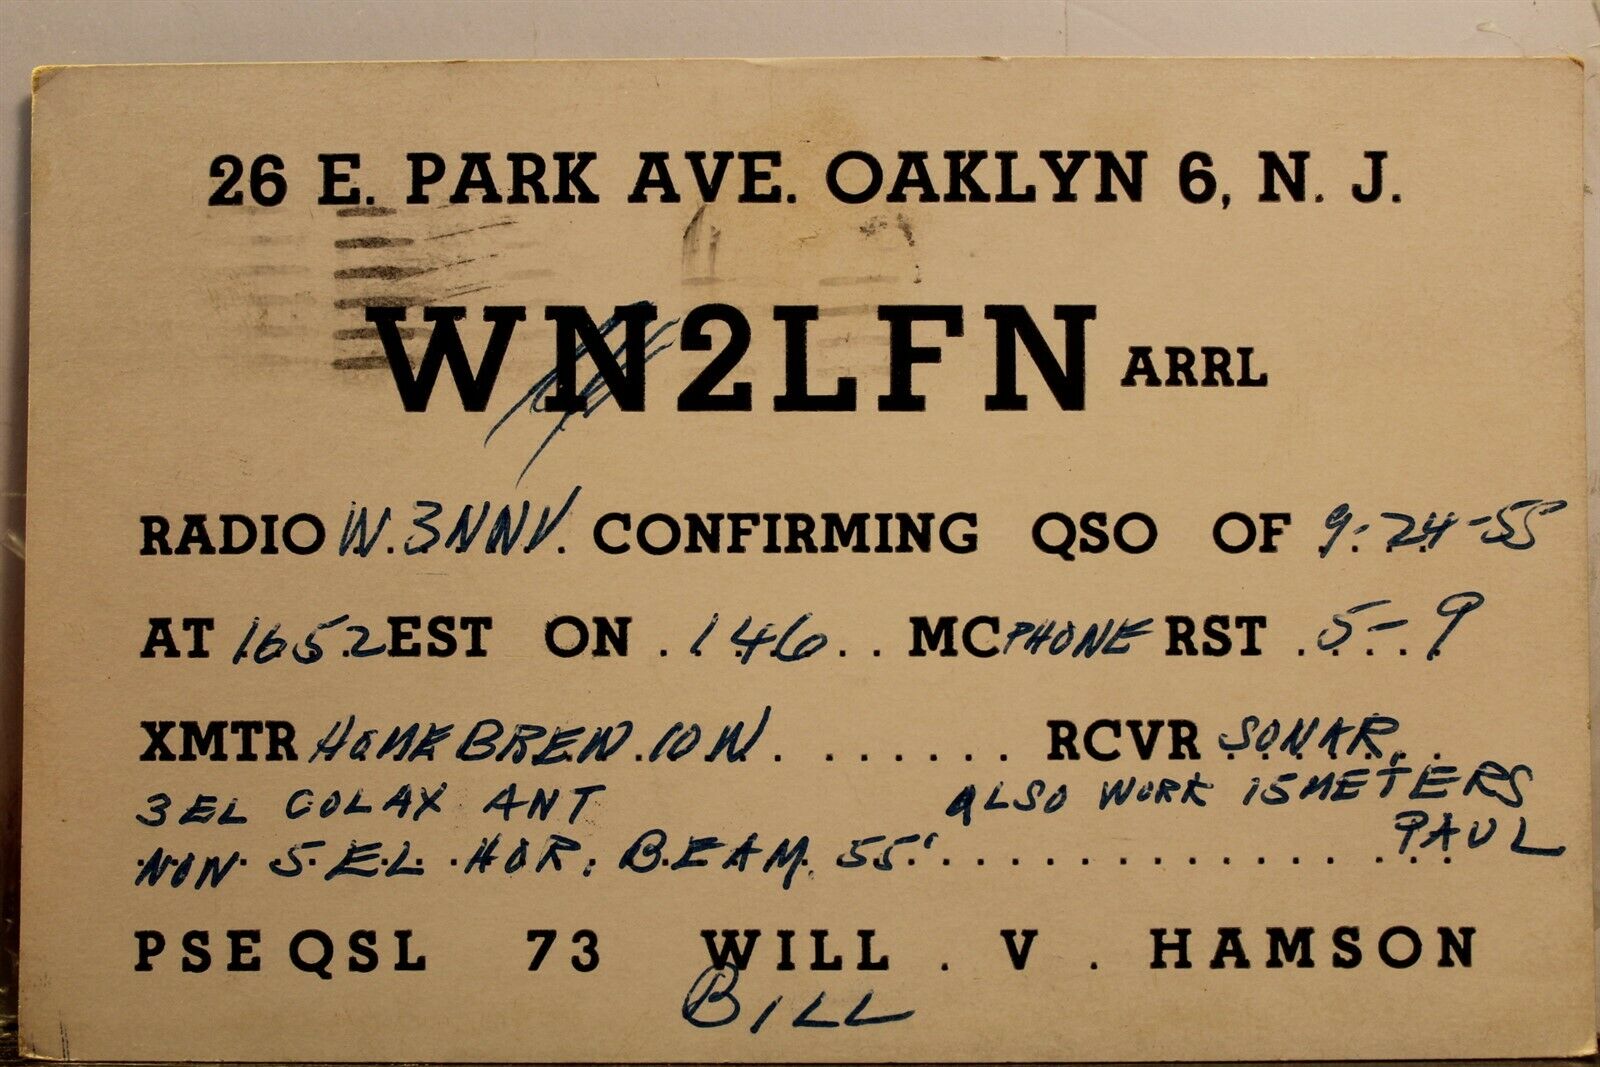 26 E. PARK AVE. OAKLYN 6, N. J.
WN2LFN ARRL
RADIO W.3NNV. CONFIRMING QSO OF 9-24-55
AT 1652 EST ON .146.. MC PHONE RST .5-9
XMTR HOMEBREW.10W. ....... RCVR SONAR..
3 EL COLAX ANT ALSO WORK 15 METERS
NOW 5.EL. HOR. BEAM. 55' ................ PAUL
PSE QSL 73 WILL . V . HAMSON
BILL